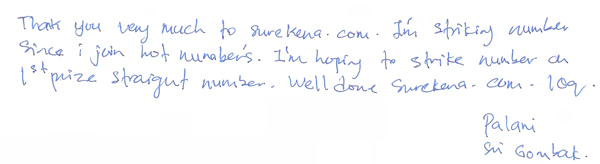 Thank you very much to surekena.com. I'm striking number
since i join hot number's. I'm hoping to strike number on
1st prize straigut number. Well done surekena.com. loq.
Palani
Sri Gombak.